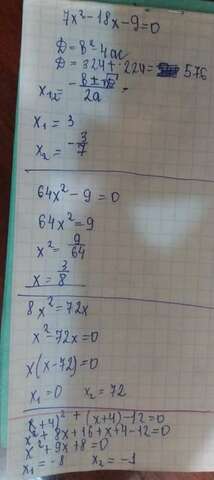 7x²-18x-9=0
D=8² 4ac
D=324+·224= 576
x₁₂= -8±√ / 2a
x₁=3
x₂=-3/7
64x²-9=0
64x²=9
x²=9/64
x=3/8
8x²=72x
x²-72x=0
x(x-72)=0
x₁=0 x₂=72
(x+4)²+(x+4)-12=0
x²+8x+16+x+4-12=0
x²+9x+8=0
x₁=-8 x₂=-1